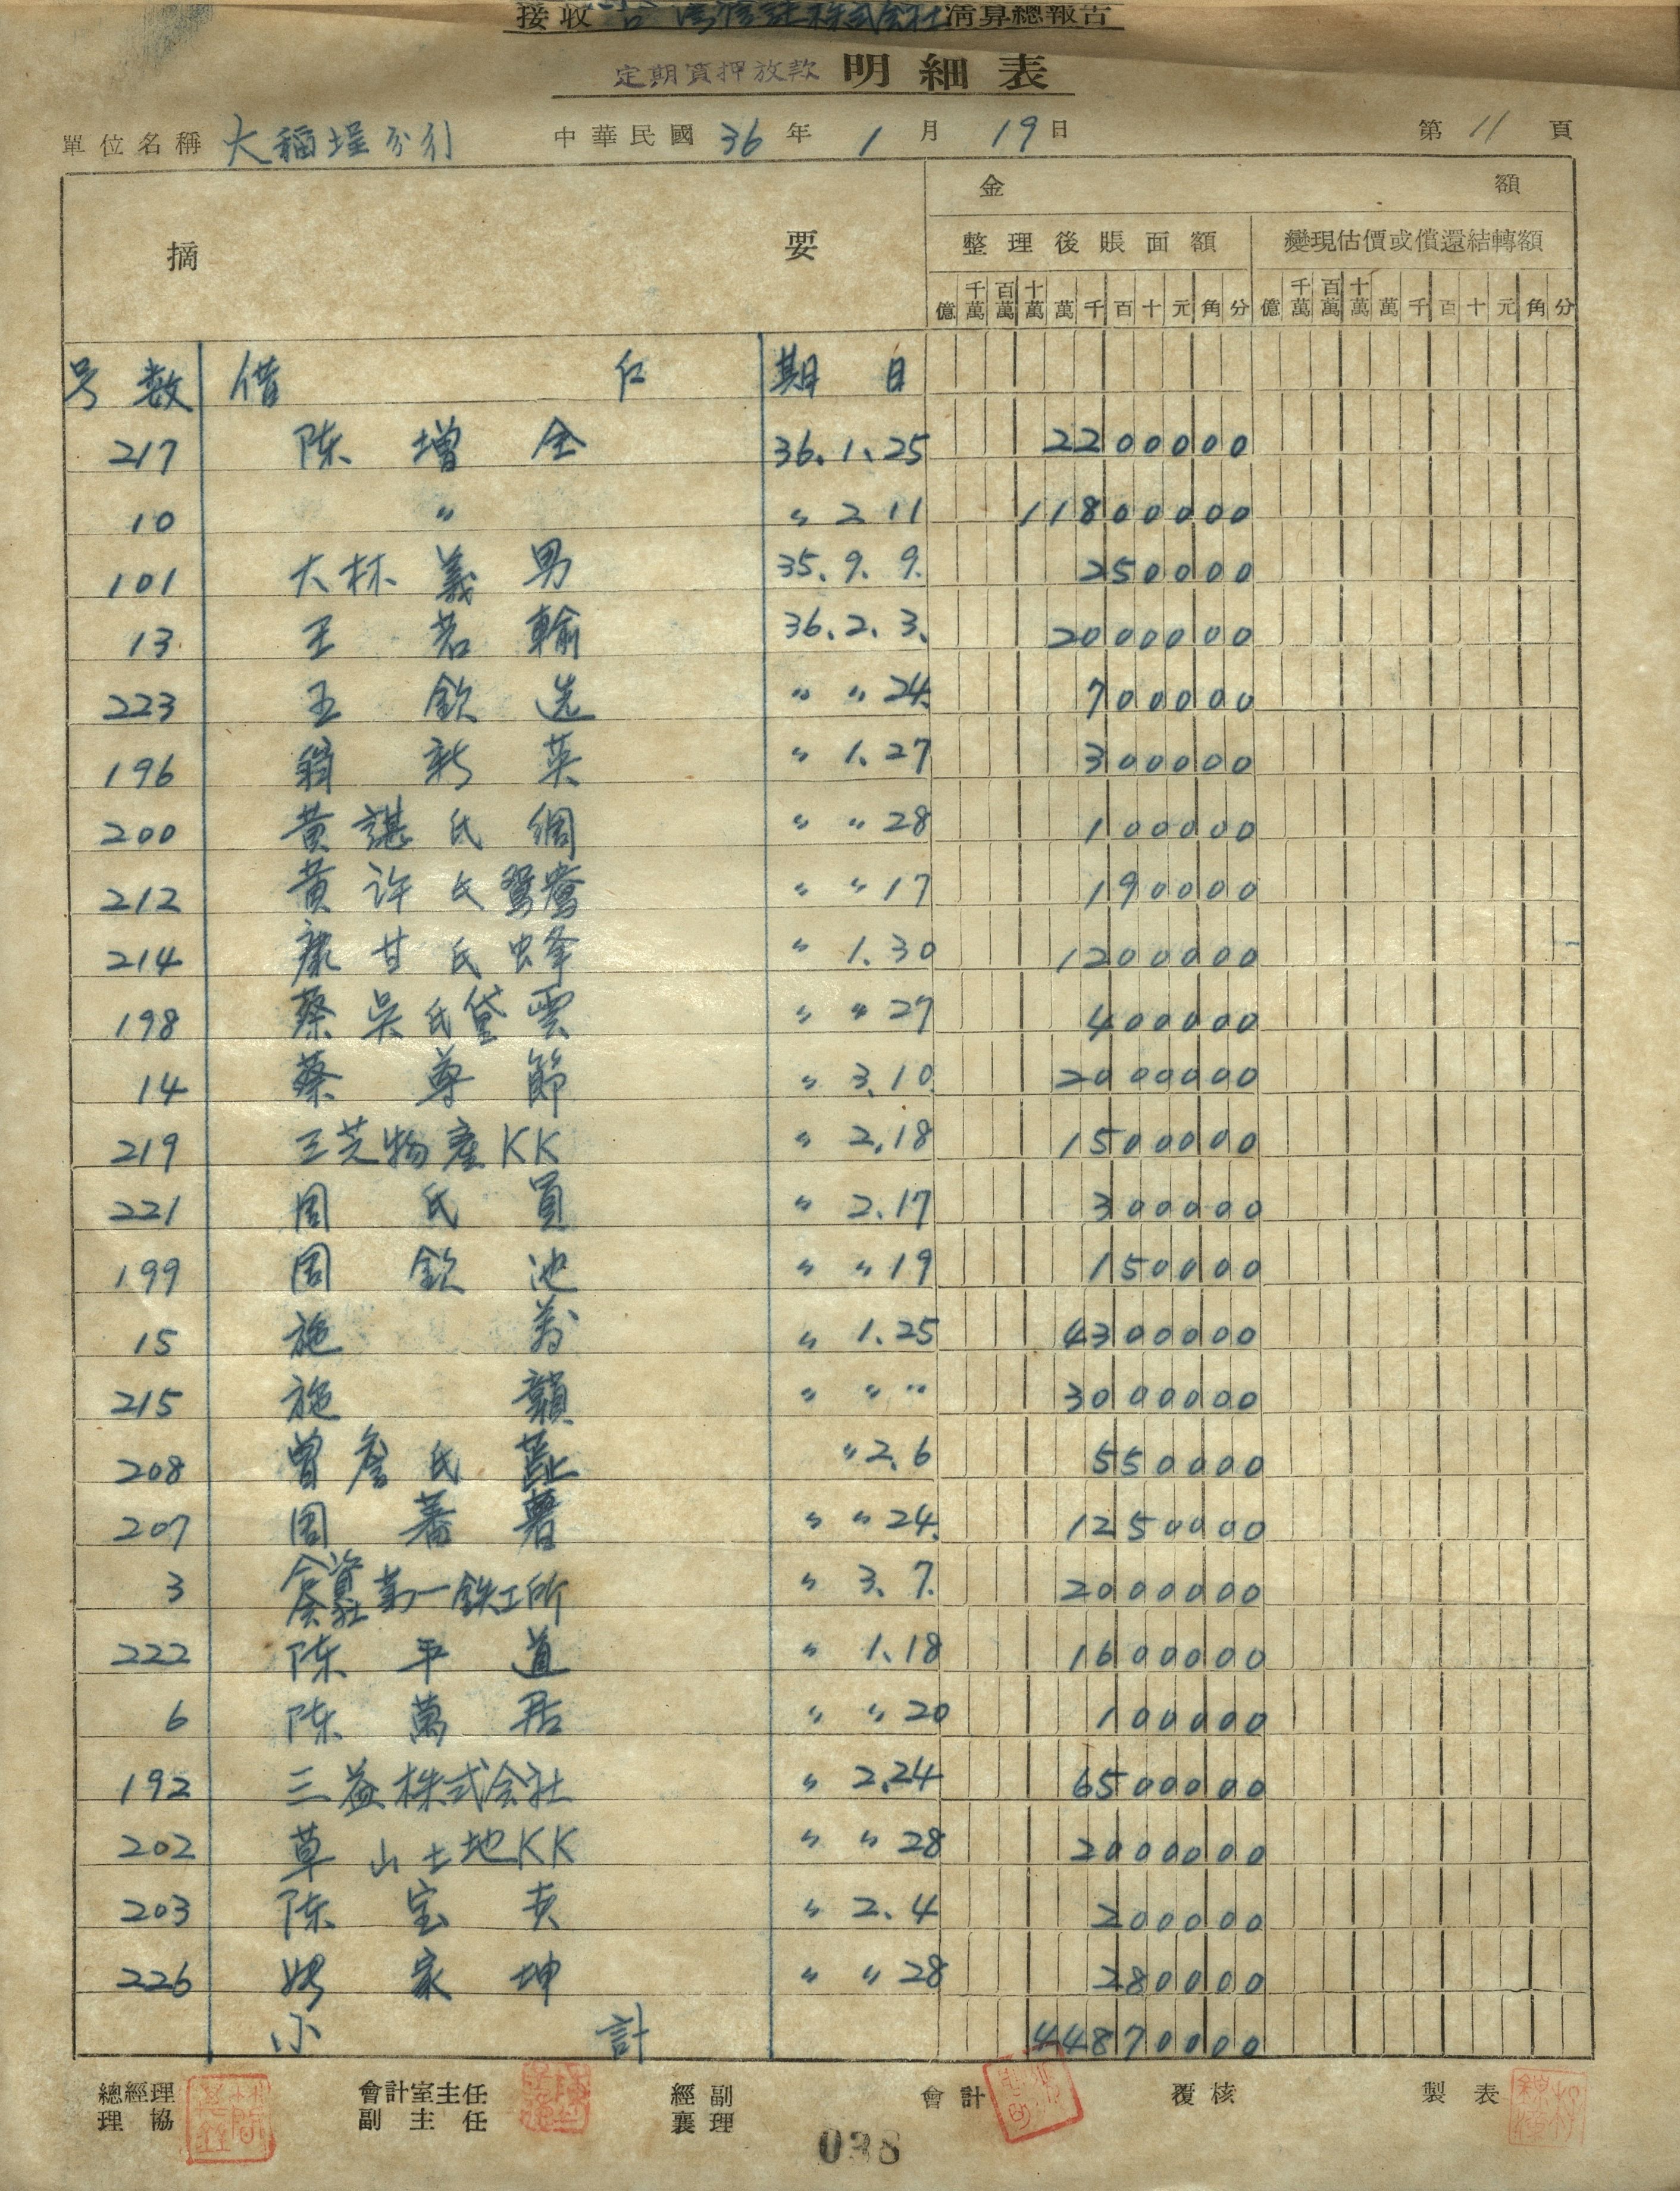 接收台湾信託株式会社清算總報告
定期質押放款 明細表
單位名稱 大稻埕分行 中華民國 36 年 1 月 19 日 第 11 頁
摘要 金額
整理後賬面額 變現估價或償還結轉額
億 千萬 百萬 十萬 萬 千 百 十 元 角 分 億 千萬 百萬 十萬 萬 千 百 十 元 角 分
号数 借 期日
217 陈增全 36.1.25 2200000
10 〃 〃 2 11 11800000
101 大林義男 35.9.9. 250000
13 王若輸 36.2.3. 2000000
223 王欽选 〃 〃 24. 700000
196 翁新英 〃 1.27 300000
200 黄諶氏綢 〃 〃 28 100000
212 黄许氏鴛鴦 〃 〃 17 190000
214 康甘氏蜂 〃 1.30 1200000
198 蔡吳氏黛雲 〃 〃 27 400000
14 蔡尊節 〃 3.10. 2000000
219 三芝物産KK 〃 2.18 1500000
221 周氏員 〃 2.17 300000
199 周欽池 〃 〃 19 150000
15 施 〃 1.25 4300000
215 施 〃 〃 〃 3000000
208 曾詹氏 〃 2.6 550000
207 周蕃薯 〃 〃 24. 1250000
3 合資会社第一鉄工所 〃 3.7. 2000000
222 陈平道 〃 1.18 1600000
6 陈萬居 〃 〃 20 100000
192 三益株式会社 〃 2.24 6500000
202 草山土地KK 〃 〃 28 2000000
203 陈宝 〃 2.4 200000
226 家坤 〃 〃 28 280000
小計 44870000
總經理 會計室主任 經副 會計 覆核 製表
理協 副主任 襄理
038